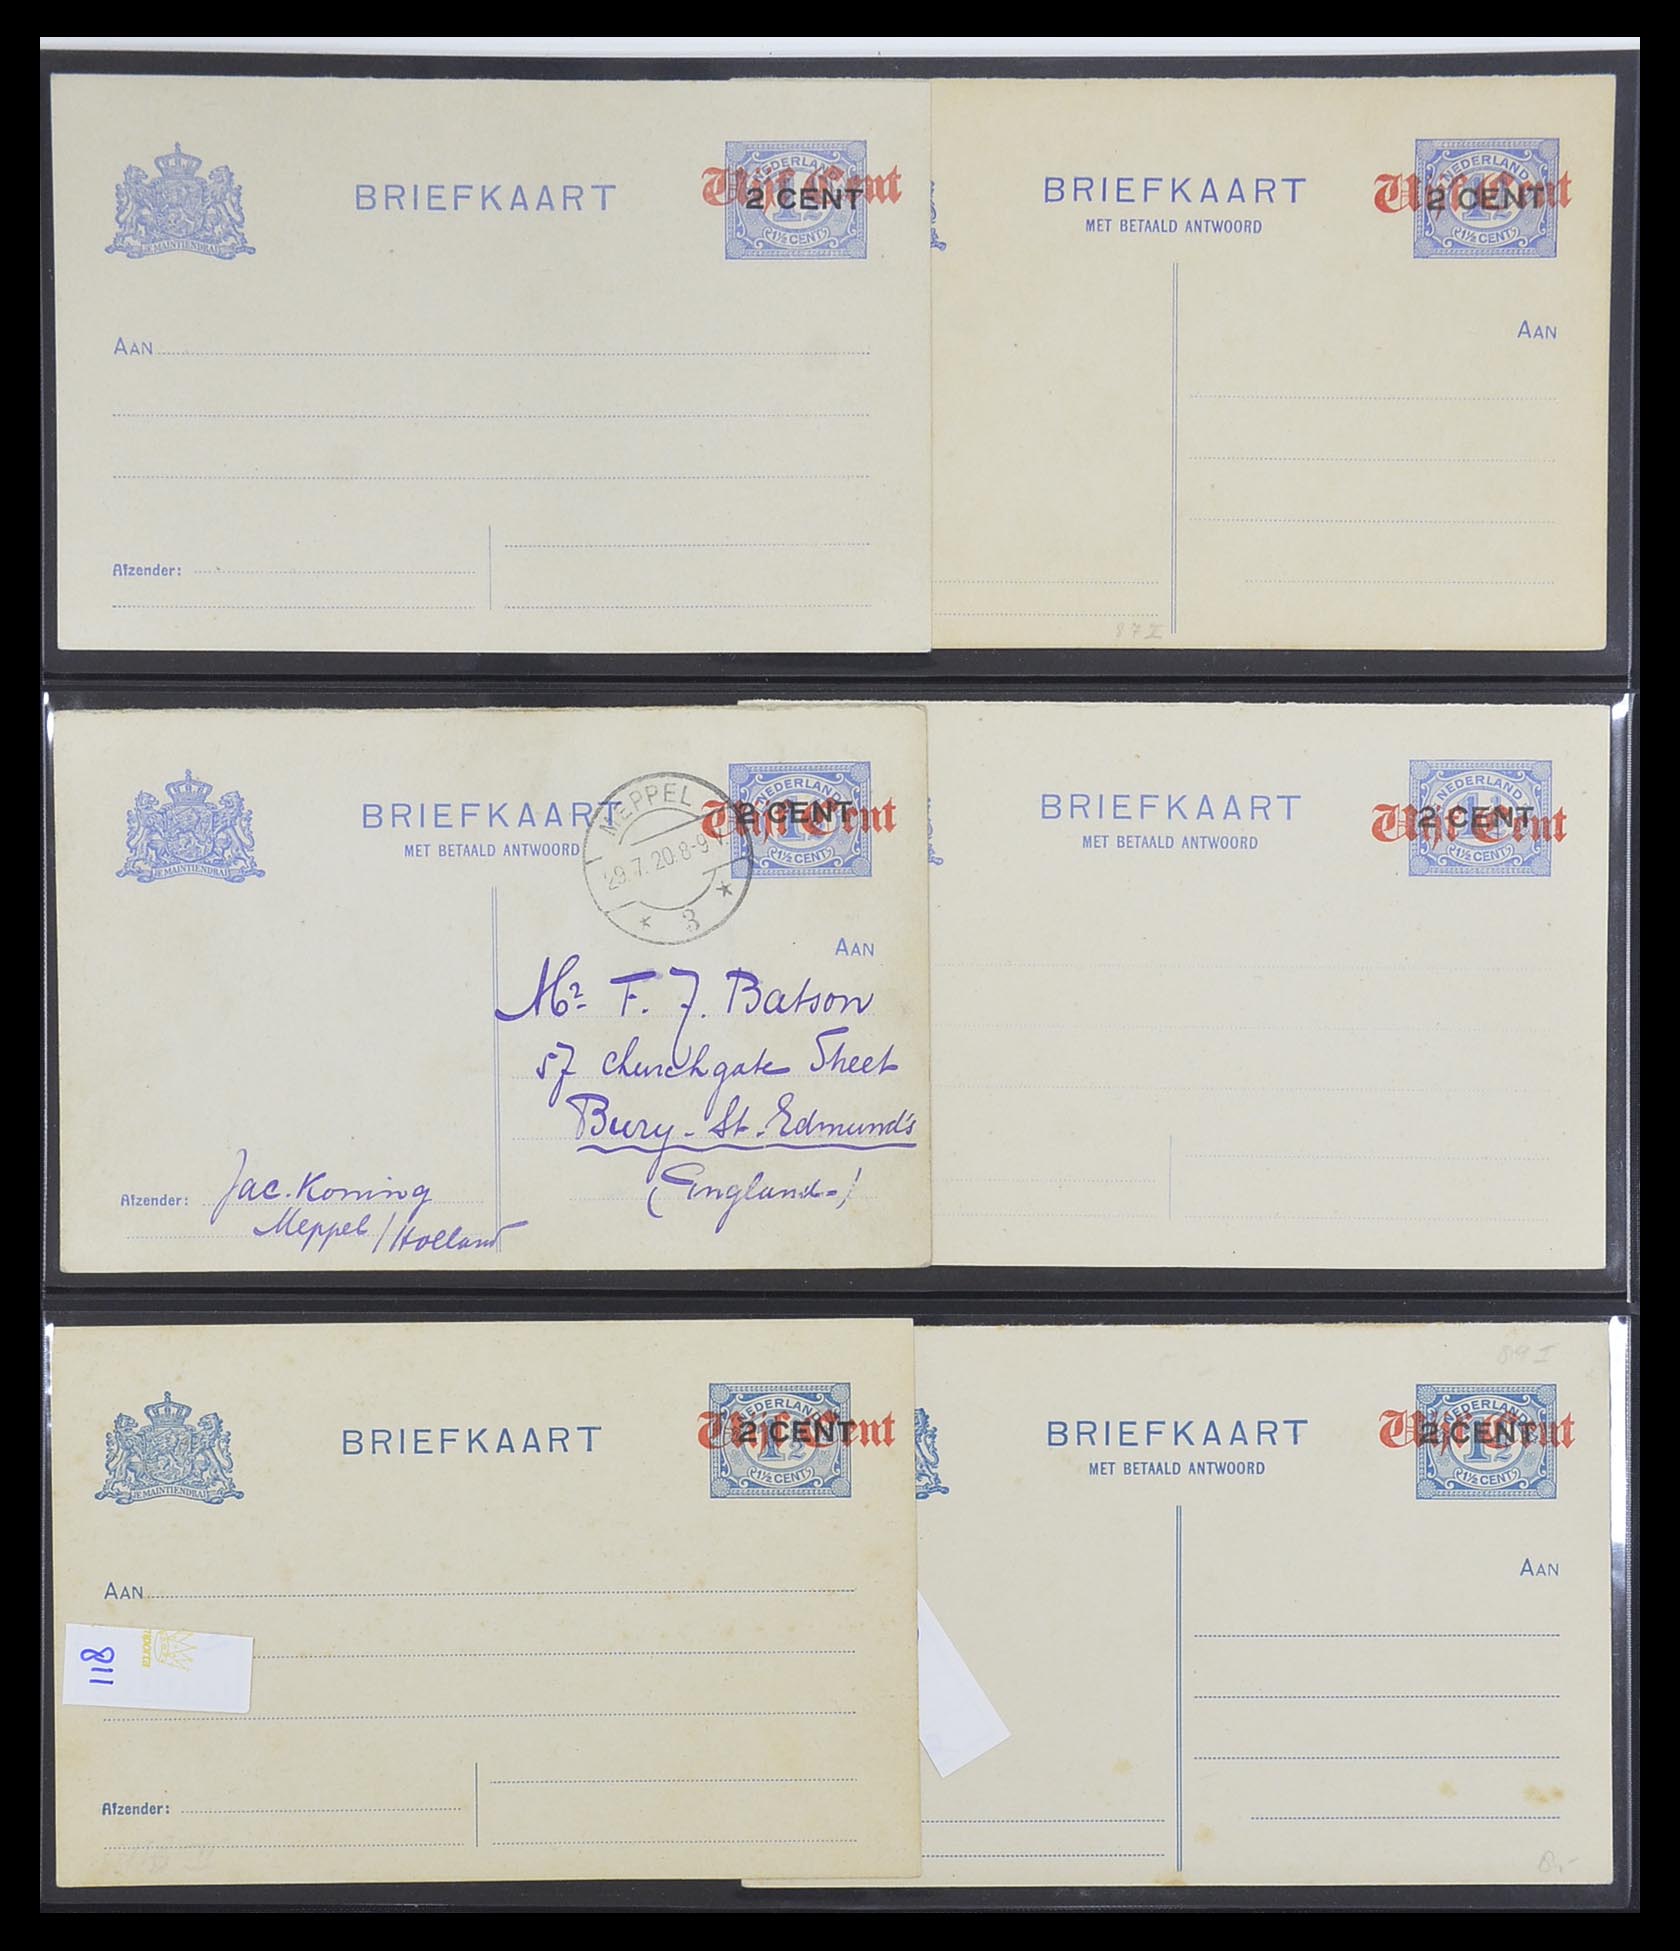 BRIEFKAART
NEDERLAND
Vijf Cent
2 CENT
1½ CENT
JE MAINTIENDRAI
AAN
Afzender:
BRIEFKAART
MET BETAALD ANTWOORD
NEDERLAND
Vijf Cent
2 CENT
1½ CENT
AAN
87 I
BRIEFKAART
MET BETAALD ANTWOORD
MEPPEL
29.7.20.8-9 V.
3
NEDERLAND
2 CENT
Vijf Cent
1½ CENT
JE MAINTIENDRAI
AAN
Mr. F. J. Batson
57 Churchgate Street
Bury-St.Edmund's
(England-)
Afzender: Jac. Koning
Meppel/Holland
BRIEFKAART
MET BETAALD ANTWOORD
NEDERLAND
2 CENT
Vijf Cent
1½ CENT
BRIEFKAART
NEDERLAND
Vijf Cent
2 CENT
1½
1½ CENT
JE MAINTIENDRAI
AAN
118
Afzender:
89 I
BRIEFKAART
MET BETAALD ANTWOORD
NEDERLAND
Vijf Cent
2 CENT
1½
1½ CENT
AAN
8,-